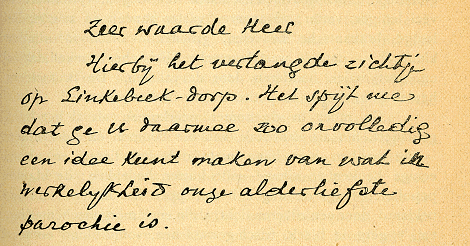 Zeer waarde Heer
Hierbij het verlangde zichtje
op Linkebeek-dorp. Het spijt me
dat ge U daarmee zoo onvolledig
een idee kunt maken van wat in
werkelijkheid onze alderliefste
parochie is.